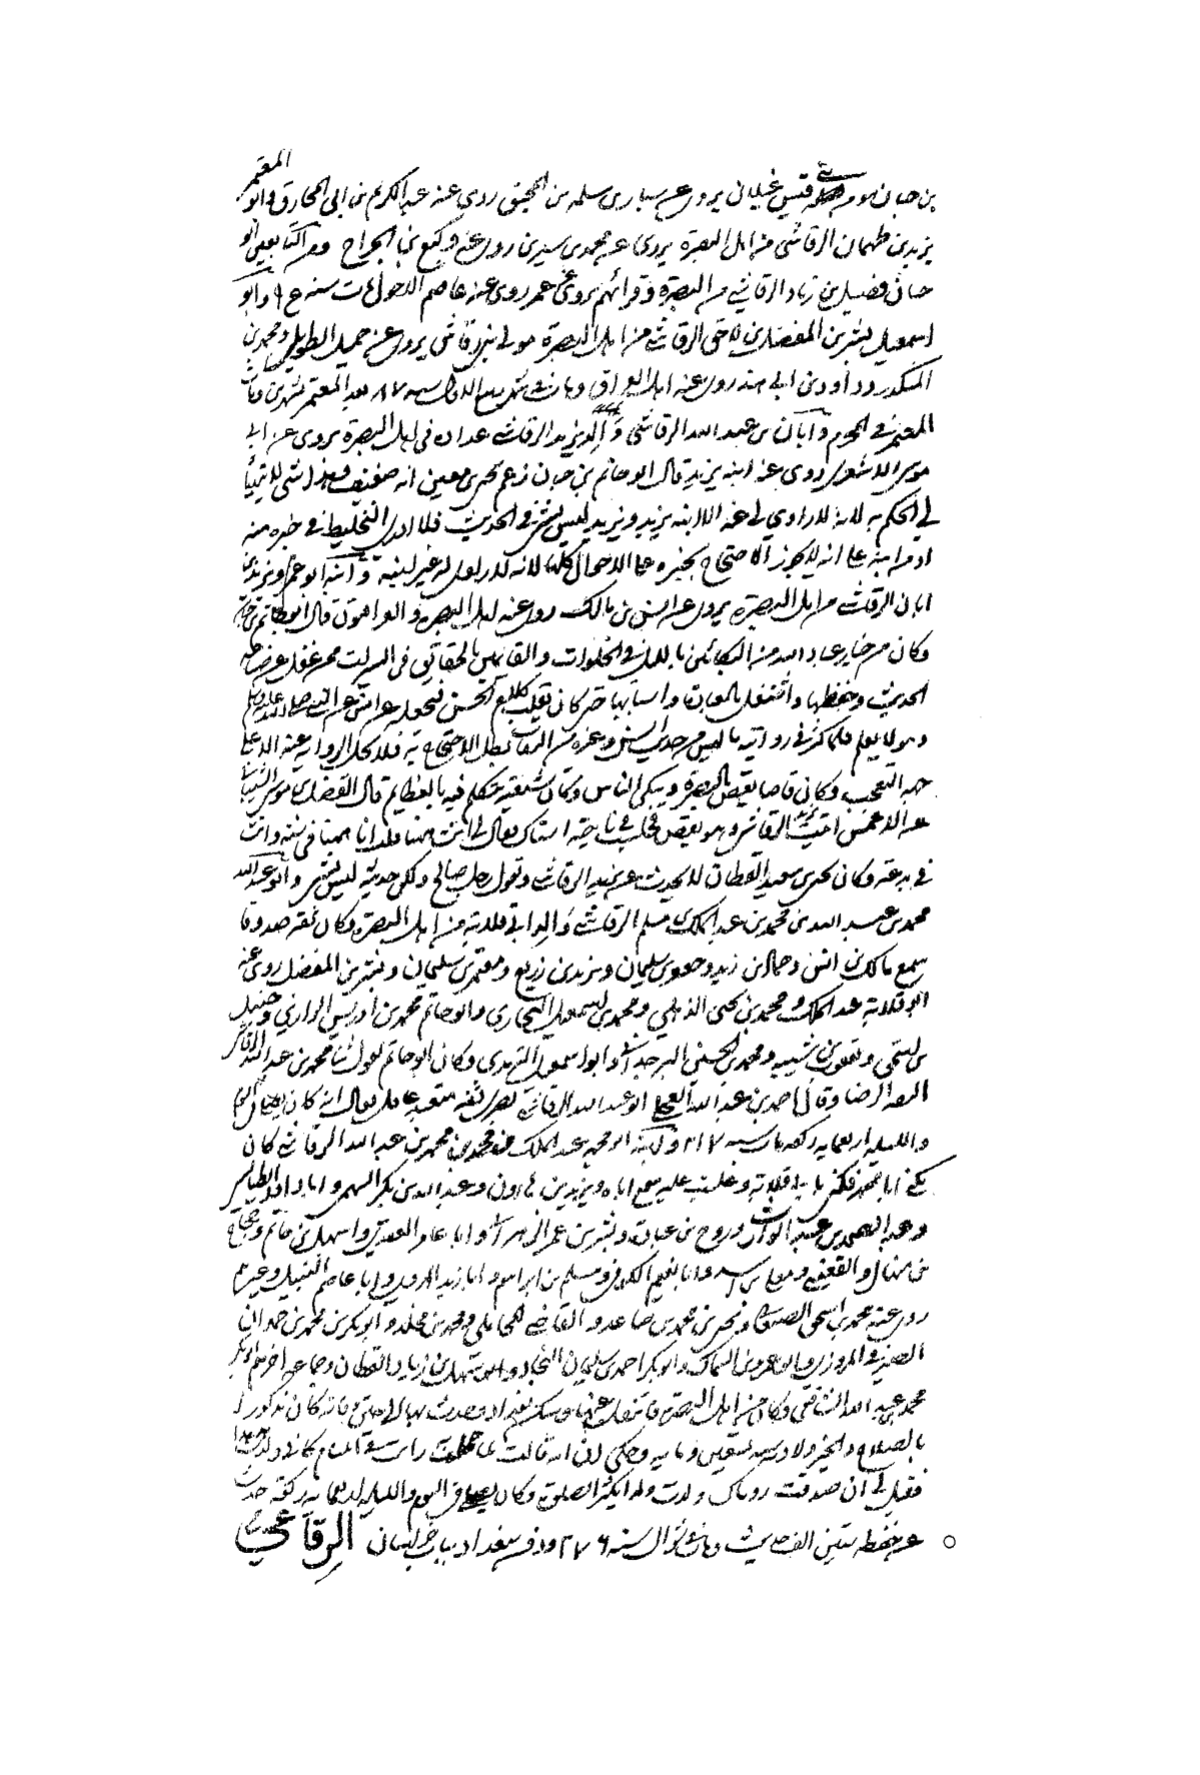 المعتمر
بن حبان هو من قيس غيلان يروى عن سنان بن سلمه بن المحبق روى عنه عبد الكريم بن ابى المخارق وابو
يزيد بن طهمان الرقاشى من اهل البصرة يروى عن محمد بن سيرين روى عنه وكيع بن الجراح ومن التابعين ابو
حسان فضيل بن زياد الرقاشى من البصرة وقرائهم يروى عن عمر روى عنه عاصم الاحول مات سنه وابو
اسمعيل بشر بن المفضل بن لاحق الرقاشى من اهل البصرة مولى بنى رقاش يروى عن حميد الطويل ومحمد بن
المنكدر وداود بن ابى هند روى عنه اهل العراق ومات فى شهر ربيع الاول سنه ١٨٧ بعد المعتمر بشهرين ومات
المعتمر فى المحرم وابان بن عبد الله الرقاشى والد يزيد الرقاشى عداده فى اهل البصرة يروى عن ابى
موسى الاشعرى روى عنه ابنه يزيد قال ابو حاتم بن حبان زعم يحيى بن معين انه ضعيف وهذا شى لا يتهيأ
لى الحكم به لانه لا راوى له عنه الا ابنه يزيد ويزيد ليس بشى فى الحديث فلا ادرى التخليط فى خبره منه
او من ابنه على انه لا يجوز الاحتجاج بخبره على الاحوال كلها لانه لا راوى له غير ابنه وابنه ابو عمرو يزيد بن
ابان الرقاشى من اهل البصرة يروى عن انس بن مالك روى عنه اهل البصرة والعراقيون قال ابو حاتم بن حبان
وكان من خيار عباد الله من البكائين بالليل فى الخلوات والقائمين بالحقائق فى السبرات ممن غفل عن صناعه
الحديث وحفظها واشتغل بالعبادة واسبابها حتى كان يقلب كلام الحسن فيجعله عن انس عن النبى صلى الله عليه وسلم
وهو لا يعلم فلما كثر فى روايته ما ليس من حديث انس وغيره من الثقات بطل الاحتجاج به فلا تحل الرواية عنه الا على
جهه التعجب وكان قاصا يقص بالبصرة ويبكى الناس وكان شعبة يتكلم فيه بالعظائم قال الفضل بن موسى السينانى
عن الاعمش اتيت يزيد الرقاشى وهو يقص فجلست فى ناحية استاك فقال لى انت ههنا قلت انا ههنا فى سنه وانت
فى بدعه وكان يحيى بن سعيد القطان لا يحدث عن يزيد الرقاشى ويقول رجل صالح ولكن حديثه ليس بشى وابو عبد الله
محمد بن عبد الله بن محمد بن عبد الملك بن مسلم الرقاشى والد ابى قلابة من اهل البصرة وكان ثقه صدوقا
سمع مالك بن انس وحماد بن زيد وجعفر بن سليمان ويزيد بن زريع ومعتمر بن سليمان وبشر بن المفضل روى عنه
ابو قلابة عبد الملك ومحمد بن يحيى الذهلى ومحمد بن اسمعيل البخارى وابو حاتم محمد بن ادريس الرازى وحنبل
بن اسحق ويعقوب بن شيبه ومحمد بن الحسين البرجلانى وابو اسمعيل الترمذى وكان ابو حاتم يقول ثنا محمد بن عبد الله الرقاشى
الثقه الرضا وقال احمد بن عبد الله العجلى ابو عبد الله الرقاشى بصرى ثقه متعبد عاقل يقال انه كان يصلى فى اليوم
والليله اربعمايه ركعه مات سنه ٢١٧ وابنه ابو محمد عبد الملك بن محمد بن عبد الله الرقاشى كان
يكنى ابا محمد فكنى بابى قلابة وغلبت عليه سمع اباه ويزيد بن هارون وعبد الله بن بكر السهمى وابا داود الطيالسى
وعبد الصمد بن عبد الوارث وروح بن عبادة وبشر بن عمر الزهرانى وابا عامر العقدى واسهل بن حاتم وحجاج
بن منهال والقعنبى ومعلى بن اسد وابا نعيم الكوفى ومسلم بن ابراهيم وابا زيد الهروى وابا عاصم النبيل وغيرهم
روى عنه محمد بن اسحق الصغانى ويحيى بن محمد بن صاعد والقاضى المحاملى ومحمد بن مخلد وابو بكر بن محمد بن حمدان
الصيرفى المروزى وابو عمرو بن السماك وابو بكر احمد بن سليمان النجاد وابو سهل بن زياد القطان وجماعه اخرهم ابو بكر
محمد بن عبد الله الشافعى وكان من اهل البصرة فانتقل عنها وسكن بغداد وحدث بها الى حين وفاته كان مذكورا
بالصلاح والخير ولادته سنه تسعين ومايه وحكى ان امه قالت لما حملت به رايت فى المنام كانى ولدت هدهدا
فقيل لى ان صدقت روياك ولدت ولدا يكثر الصلوة وكان يصلى فى اليوم والليله اربعمايه ركعه حدث
من حفظه ستين الف حديث ومات فى شوال سنه ٢٧٦ ودفن ببغداد بباب خراسان الرقاعى